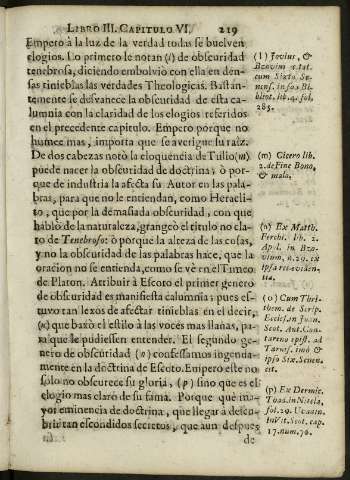 LIBRO III. CAPITULO VI. 219
Empero à la luz de la verdad todas se buelven
elogios. Lo primero le notan (l) de obscuridad
tenebrosa, diciendo embolviò con ella en den-
sas tinieblas las verdades Theologicas. Bastan-
temente se desvanece la obscuridad de esta ca-
lumnia con la claridad de los elogios referidos
en el precedente capitulo. Empero porque no
humee mas, importa que se averigue su raiz.
De dos cabezas notò la eloquencia de Tulio (m)
puede nacer la obscuridad de doctrina; ò por-
que de industria la afecta su Autor en las pala-
bras, para que no le entiendan, como Heracli-
to, que por la demasiada obscuridad, con que
hablò de la naturaleza, grangeò el titulo no cla-
ro de Tenebroso: ò porque la alteza de las cosas,
y no la obscuridad de las palabras hace, que la
oracion no se entienda, como se vè en el Timeo
de Platon. Atribuir à Escoto el primer genero
de obscuridad es manifiesta calumnia; pues es-
tuvo tan lexos de afectar tinieblas en el decir,
(n) que baxò el estilo à las voces mas llanas, pa-
ra que le pudiessen entender. El segundo ge-
nero de obscuridad (o) confessamos ingenua-
mente en la doctrina de Escoto. Empero este no
solo no obscurece su gloria, (p) sino que es el
elogio mas claro de su fama. Porque què ma-
yor eminencia de doctrina, que llegar à descu-
brir tan escondidos secretos, que aun despues
de
(l) Jovius, &
Bzovim
cum Sixto Se-
nens. in sua Bi-
bliot. lib. 4. fol.
285.
(m) Cicero lib.
2. de Fine Bono,
& malo.
(n) Ex Matth.
Ferchi. lib. 2.
Apol. in Bzo-
vium, n. 29. ex
ipsa rei eviden-
tia.
(o) Cum Thri-
them. de Scrip.
Eccles. in Joan.
Scot. Ant. Con-
tareno epist. ad
Tarvis. imò &
ipso Six. Senen-
cit.
(p) Ex Dermic.
Toad. in Nitela,
fol. 29. Uvadin.
in Vit. Scot. cap.
17. num. 70.